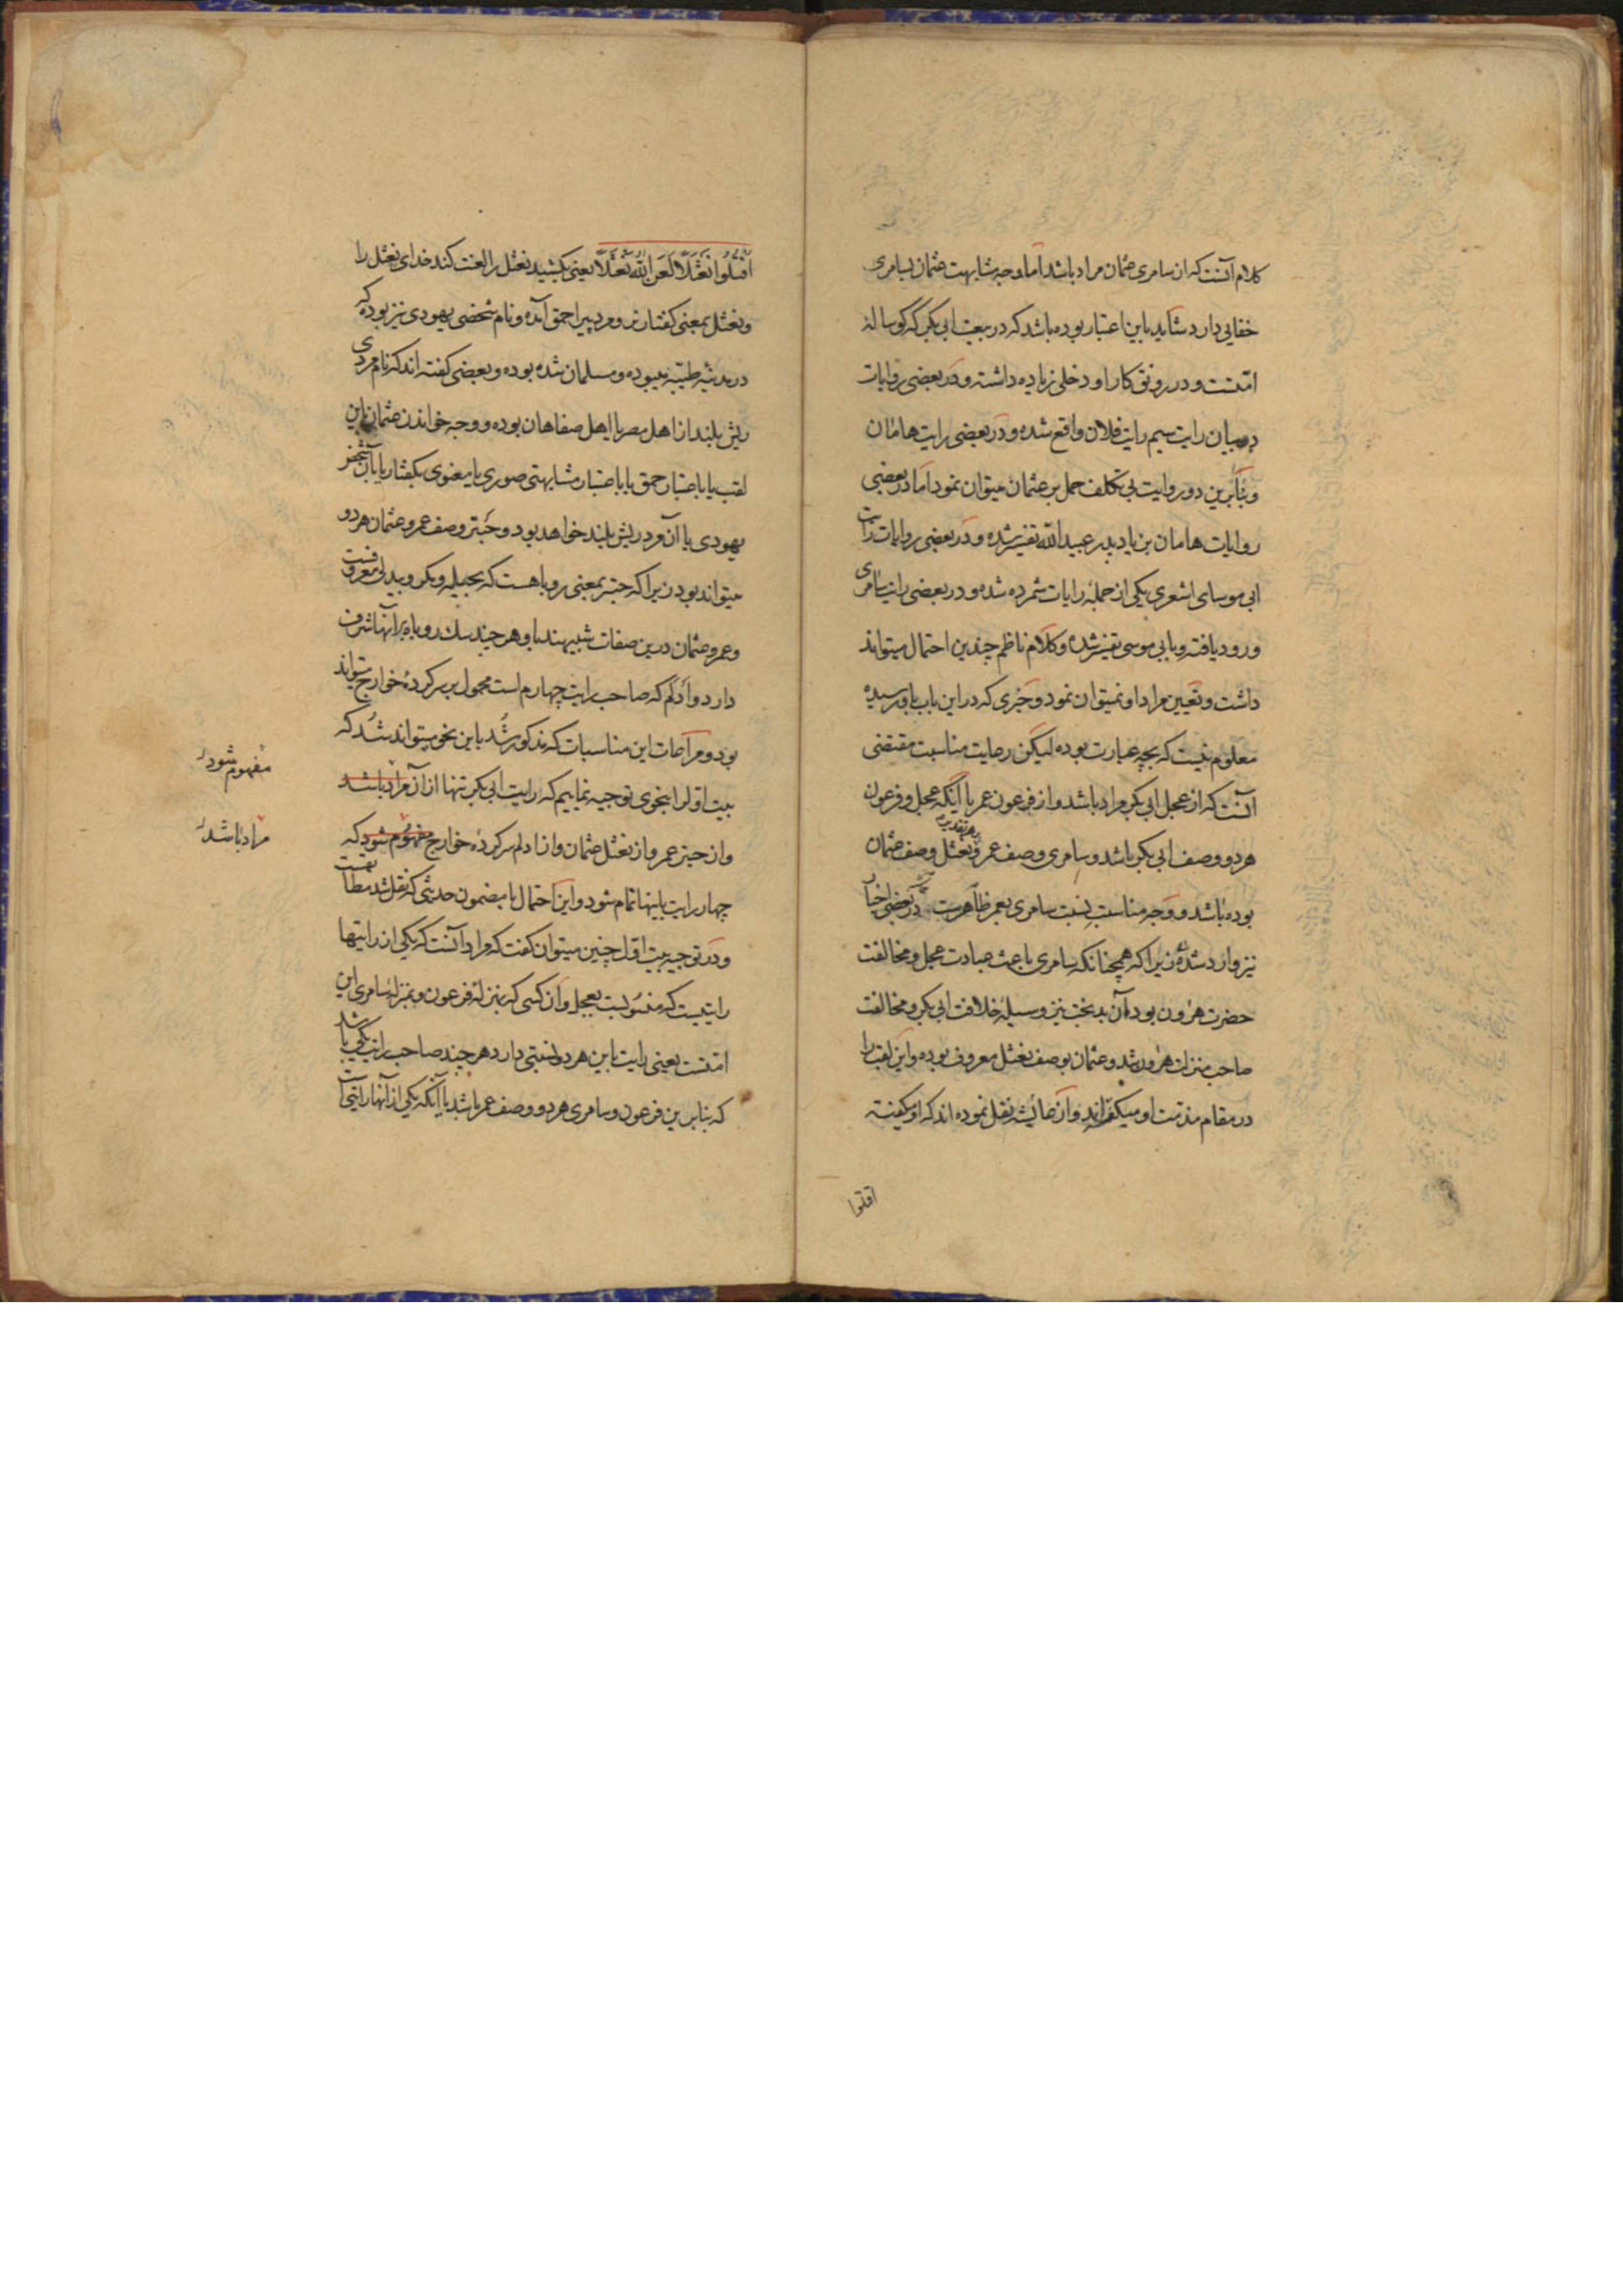 کلام آنست که از سامری عثمان مراد باشد اما وجه مشابهت عثمان بسامری
خفایی دارد شاید باین اعتبار بوده باشد که در بیعت ابی بکر که گوساله
امتست و در رونق کار او دخلی زیاده داشته و در بعضی روایات
در بیان رایت سیم رایت فلان واقع شده و در بعضی رایت هامان
و بنابرین دو روایت بی تکلف حمل بر عثمان میتوان نمود اما در بعضی
روایات هامان بن یاد پدر عبید الله تفسیر شده و در بعضی روایات رایت
ابی موسای اشعری یکی از جمله رایات شمرده شده و در بعضی رایت سامری
ورود یافته و بابی موسی تفسیر شده و کلام ناظم چندین احتمال میتواند
داشت و تعیین مراد او نمیتوان نمود و خبری که در این باب باو رسیده
معلوم نیست که بچه عبارت بوده لیکن رعایت مناسبت مقتضی
آنست که از عجل ابی بکر مراد باشد و از فرعون عمر یا آنکه عجل و فرعون
هر دو وصف ابی بکر باشد و سامری وصف عمر و نعثل وصف عثمان
بوده باشد و وجه مناسبت نسبت سامری بعمر ظاهرست و در بعضی اخبار
نیز وارد شده زیرا که همچنانکه سامری باعث عبادت عجل و مخالفت
حضرت هرون بود آن بدبخت نیز وسیله خلافت ابی بکر و مخالفت
صاحب منزلت هرون شد و عثمان بوصف نعثل معروف بوده و این لقب را
در مقام مذمت او میگفته‌اند و از عایشه نقل نموده اند که او میگفته
اقتلوا
اُقْتُلُوا نَعْثَلاً لَعَنَ اللهُ نَعْثَلاً یعنی بکشید نعثل را لعنت کند خدای نعثل را
و نعثل بمعنی کفتار نر و مرد پیر احمق آمده و نام شخصی یهودی نیز بوده که
در مدینه طیبه میبوده و مسلمان شده بوده و بعضی گفته اند که نام مردی
ریش بلند از اهل مصر یا اهل صفاهان بوده و وجه خواندن عثمان باین
لقب یا باعتبار حمق یا باعتبار مشابهتی صوری یا معنوی بکفتار یا بآن شخص
یهودی یا آن مرد ریش بلند خواهد بود و حبتر وصف عمر و عثمان هر دو
میتواند بود زیرا که حبتر بمعنی روباهست که بحیله و مکر و بددلی معروفست
و عمر و عثمان درین صفات شبیهند باو هر چند سگ روباه بر آنها شرف
دارد و ادلم که صاحب رایت چهارم است محمول بر سرکرده خوارج میتواند
بود و مراعات این مناسبات که مذکور شد باین نحو میتواند شد که
بیت اول را بنحوی توجیه نماییم که رایت ابی بکر تنها از آن مراد باشد
مفهوم شود
و از حبتر عمر و از نعثل عثمان و از ادلم سرکرده خوارج مفهوم شود که
مراد باشد
چهار رایت باینها تمام شود و این احتمال با مضمون حدیثی که نقل شد مطابقست
و در توجیه بیت اول چنین میتوان گفت که مراد آنست که یکی از رایتها
رایتیست که منسوبست بعجل و آن کسی که بمنزله فرعون و بمنزله سامری این
امتست یعنی رایت باین هر دو نسبتی دارد هر چند صاحب رایت یکی باشد
که بنابرین فرعون و سامری هر دو وصف عمر باشد یا آنکه یکی از آنها رایتی است